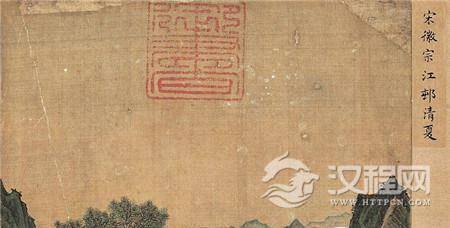 宋徽宗江邨清夏
汉程网
WWW.HTTPCN.COM